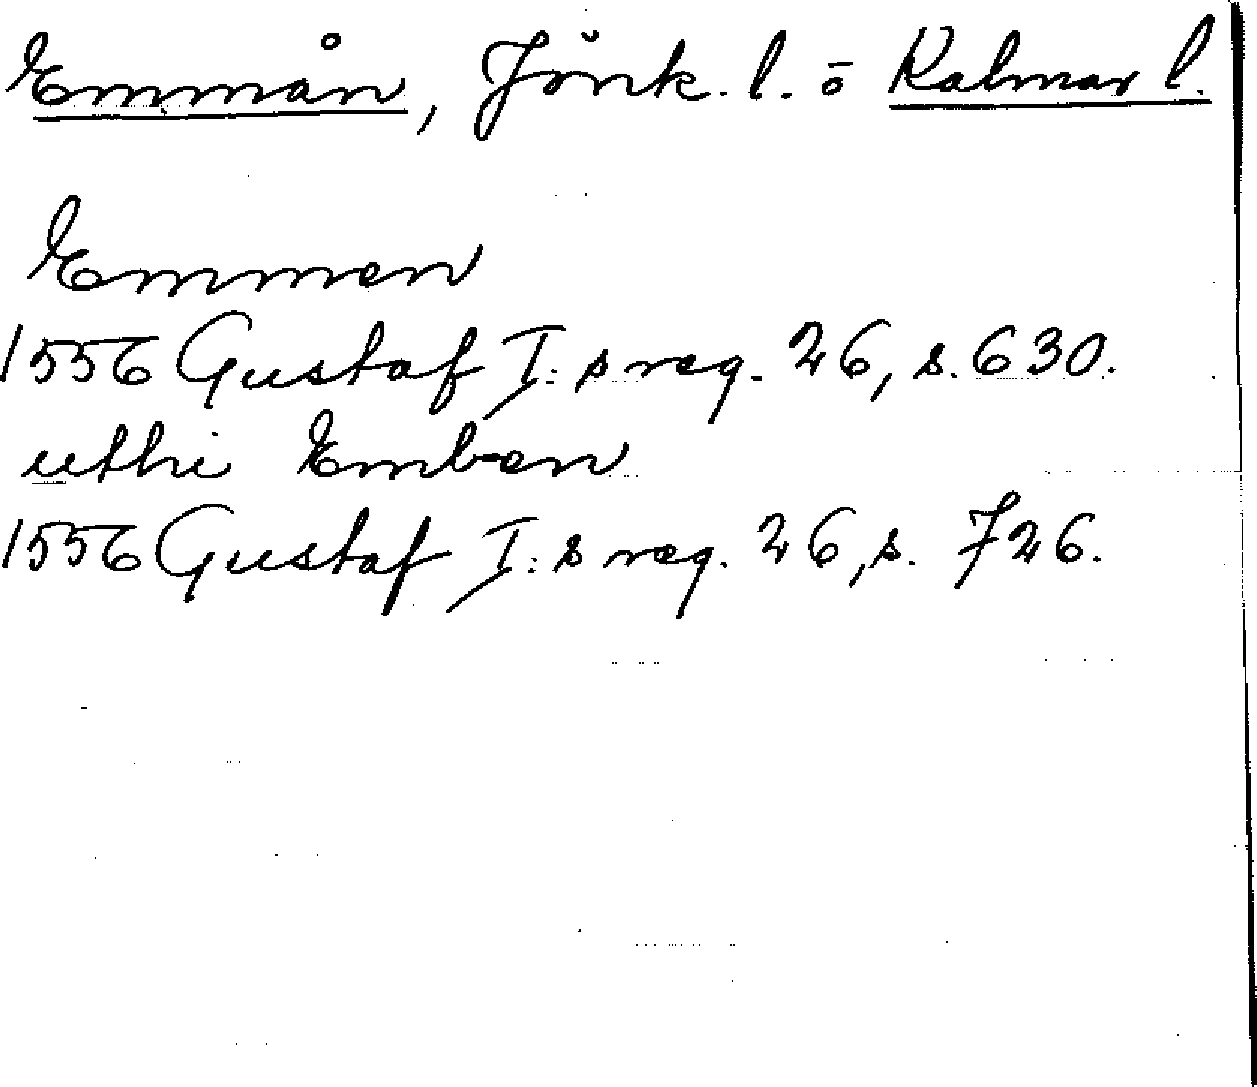 Emmån, Jönk. l. o Kalmar l.
Emmen
1556 Gustaf I:s reg. 26, s. 630.
uthi Emb-en
1556 Gustaf I:s reg. 26, s. 726.